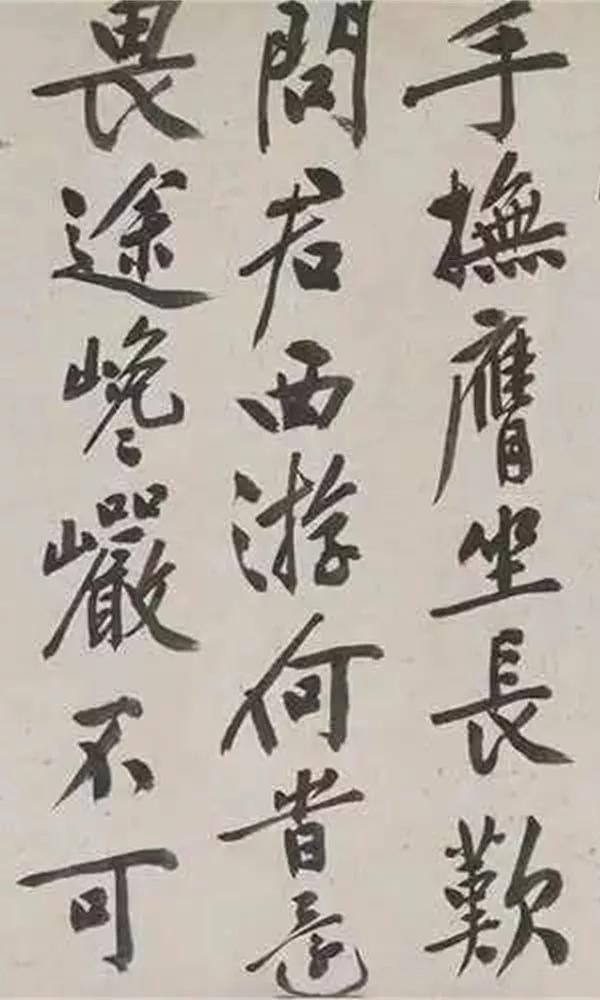 手撫膺坐長歎
問君西游何旹還
畏途巉巖不可